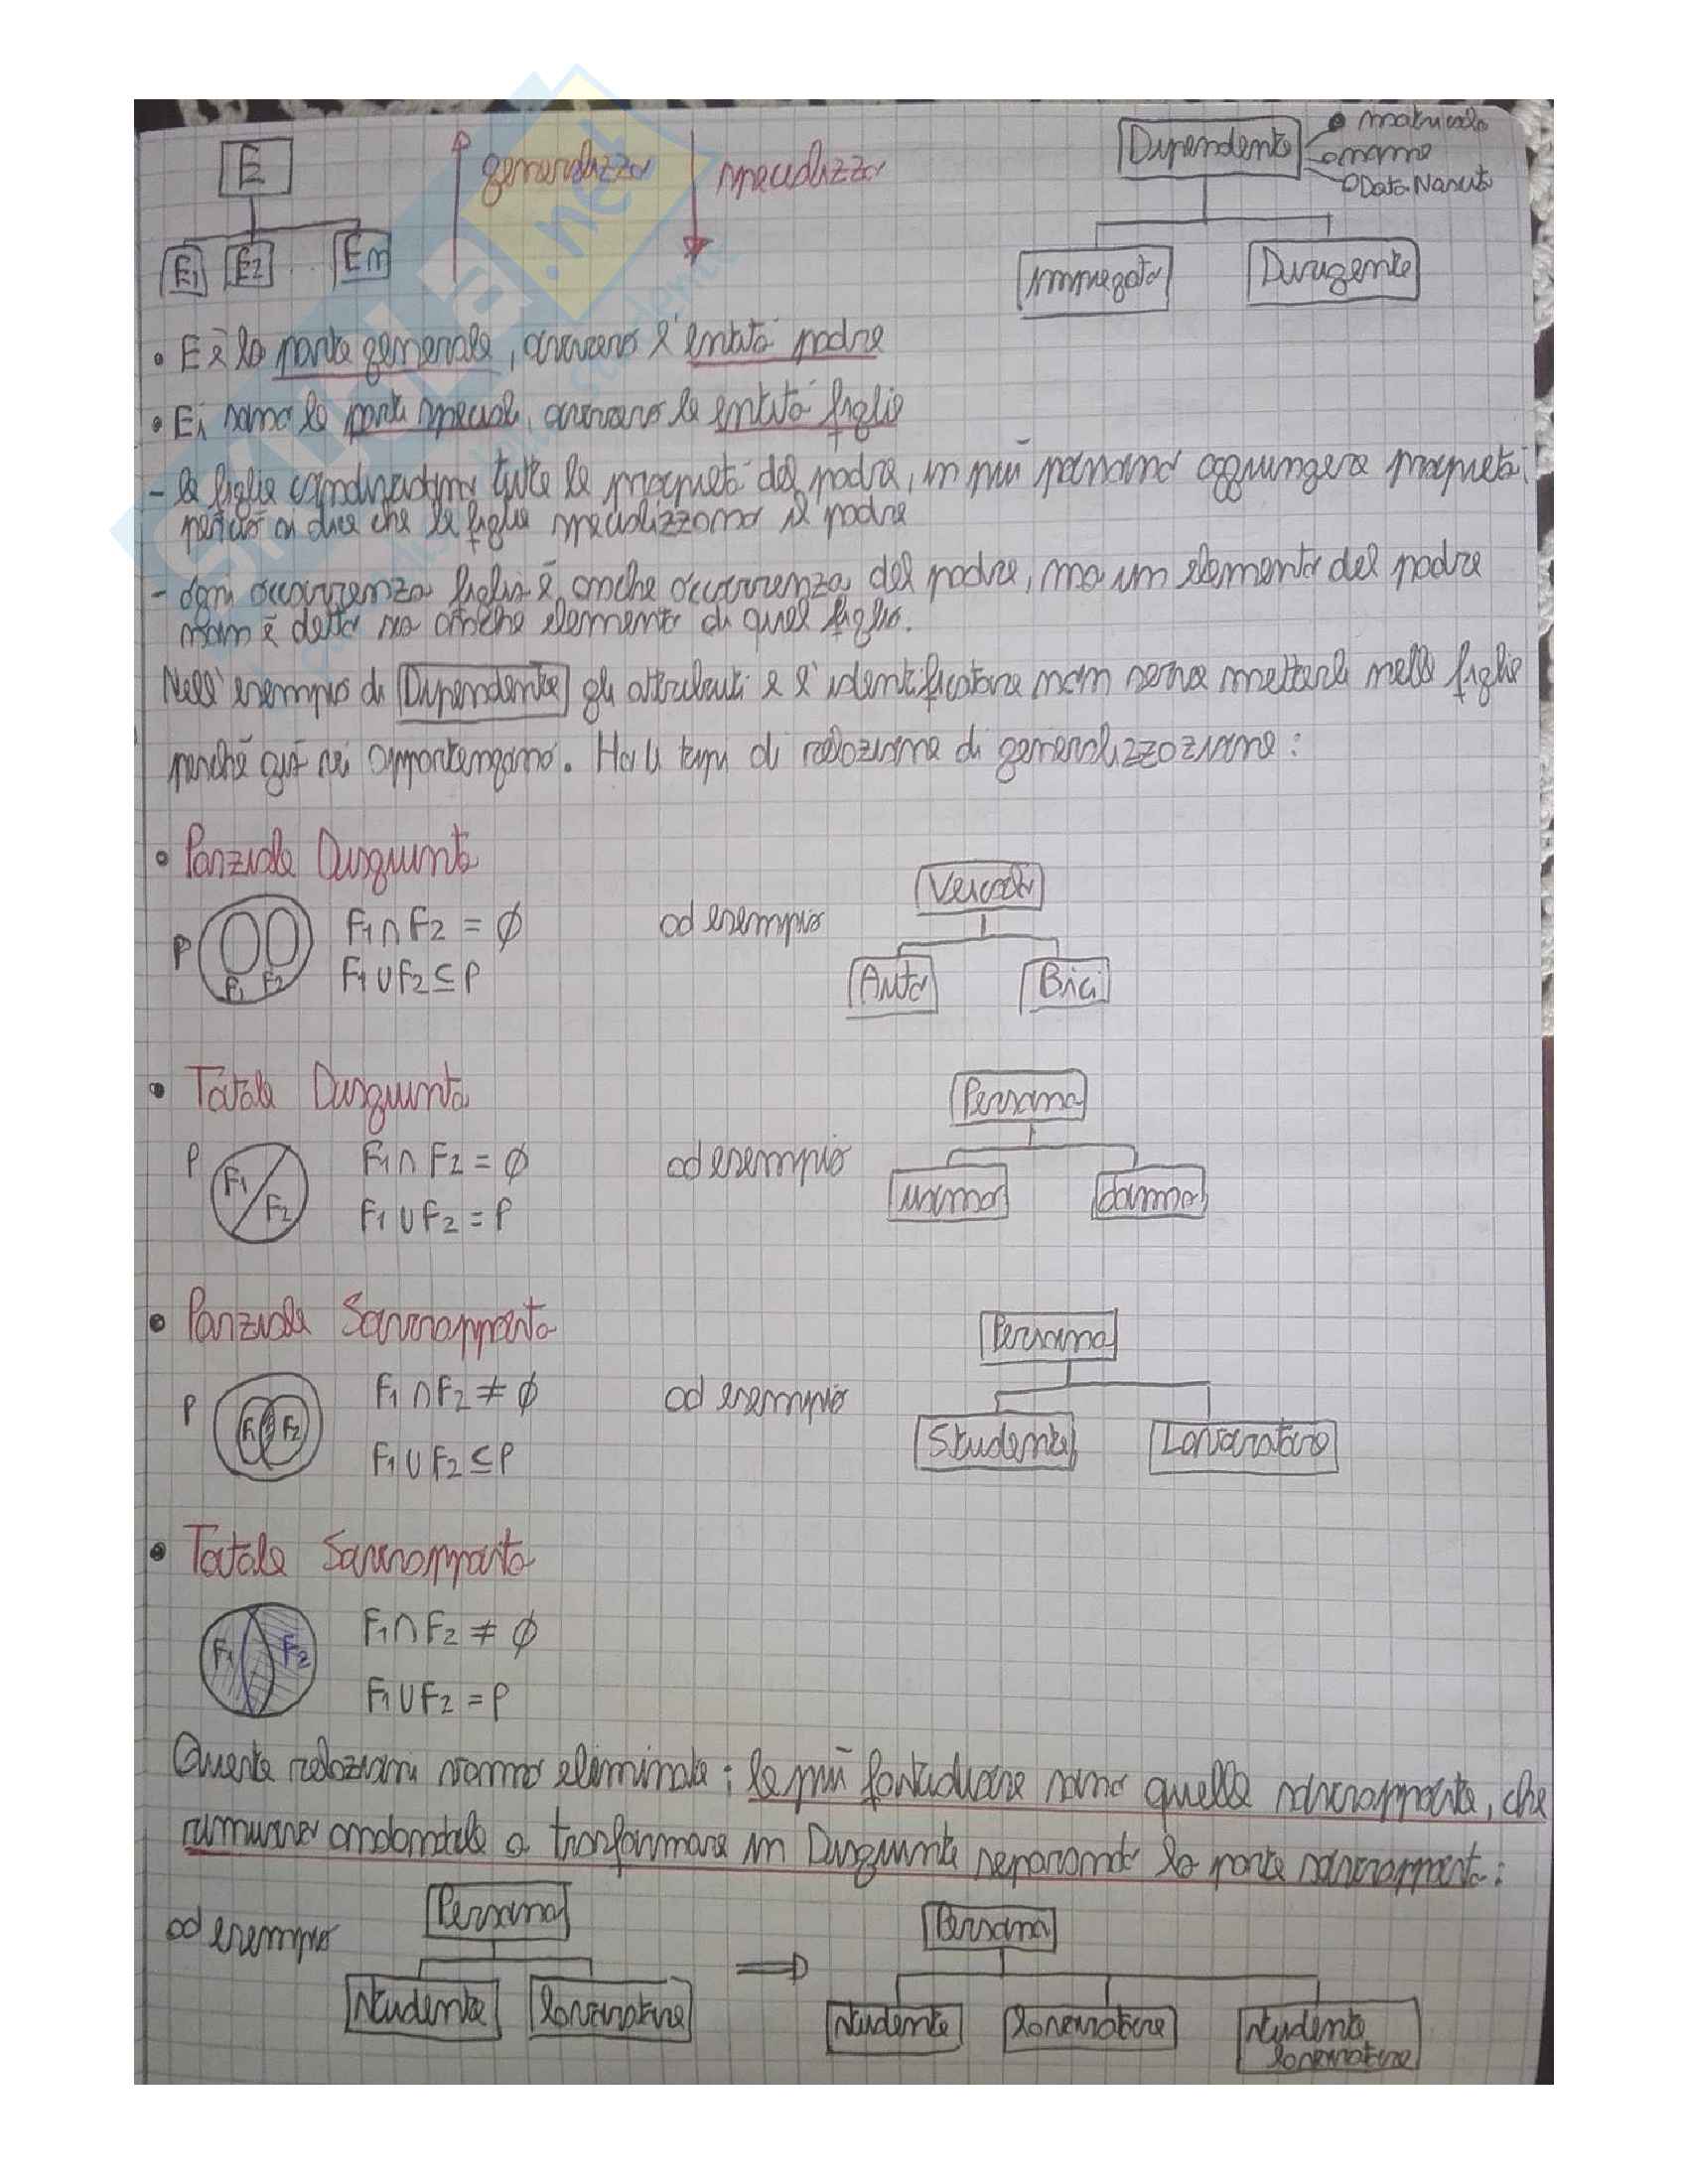 E
generalizza
specializza
Dipendente
matricola
nome
Data Nascita
E1 E2 .. En
Impiegato
Dirigente
• E è la parte generale, ovvero l'entità padre
• Ei sono le parti speciali, ovvero le entità figlie
- le figlie condividono tutte le proprietà del padre, in più possono aggiungere proprietà;
perciò si dice che le figlie specializzano il padre
- ogni occorrenza figlia è anche occorrenza del padre, ma un elemento del padre
non è detto sia anche elemento di quel figlio.
Nell'esempio di Dipendente gli attributi e l'identificatore non serve metterli nelle figlie
perché già vi appartengono. Ho 4 tipi di relazione di generalizzazione:
• Parziale Disgiunta
P F1 F2
F1 ∩ F2 = ∅
F1 ∪ F2 ⊆ P
ad esempio
Veicolo
Auto
Bici
• Totale Disgiunta
P F1 F2
F1 ∩ F2 = ∅
F1 ∪ F2 = P
ad esempio
Persona
uomo
donna
• Parziale Sovrapposta
P F1 F2
F1 ∩ F2 ≠ ∅
F1 ∪ F2 ⊆ P
ad esempio
Persona
Studente
Lavoratore
• Totale Sovrapposta
F1 F2
F1 ∩ F2 ≠ ∅
F1 ∪ F2 = P
Queste relazioni vanno eliminate; le più fastidiose sono quelle sovrapposte, che
rimuovo andandole a trasformare in Disgiunte separando la parte sovrapposta:
ad esempio
Persona
studente
lavoratore
Persona
studente
lavoratore
studente
lavoratore